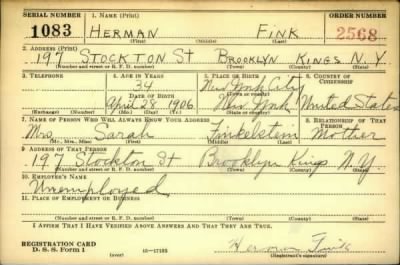 SERIAL NUMBER 1. NAME (Print) ORDER NUMBER
1083 HERMAN FINK 2568
(First) (Middle) (Last)
2. ADDRESS (Print)
197 STOCKTON ST BROOKLYN KINGS N.Y.
(Number and street or R. F. D. number) (Town) (County) (State)
3. TELEPHONE 4. AGE IN YEARS 5. PLACE OF BIRTH 6. COUNTRY OF CITIZENSHIP
34 New York City
DATE OF BIRTH (Town or county)
April 28 1906 New York United States
(Exchange) (Number) (Mo.) (Day) (Yr.) (State or country)
7. NAME OF PERSON WHO WILL ALWAYS KNOW YOUR ADDRESS 8. RELATIONSHIP OF THAT PERSON
Mrs. Sarah Finkelstein Mother
(Mr., Mrs., Miss) (First) (Middle) (Last)
9. ADDRESS OF THAT PERSON
197 Stockton St Brooklyn Kings N.Y.
(Number and street or R. F. D. number) (Town) (County) (State)
10. EMPLOYER'S NAME
Unemployed
11. PLACE OF EMPLOYMENT OR BUSINESS
(Number and street or R. F. D. number) (Town) (County) (State)
I AFFIRM THAT I HAVE VERIFIED ABOVE ANSWERS AND THAT THEY ARE TRUE.
REGISTRATION CARD
D. S. S. Form 1 (over) 16—17105 Herman Fink
(Registrant's signature)